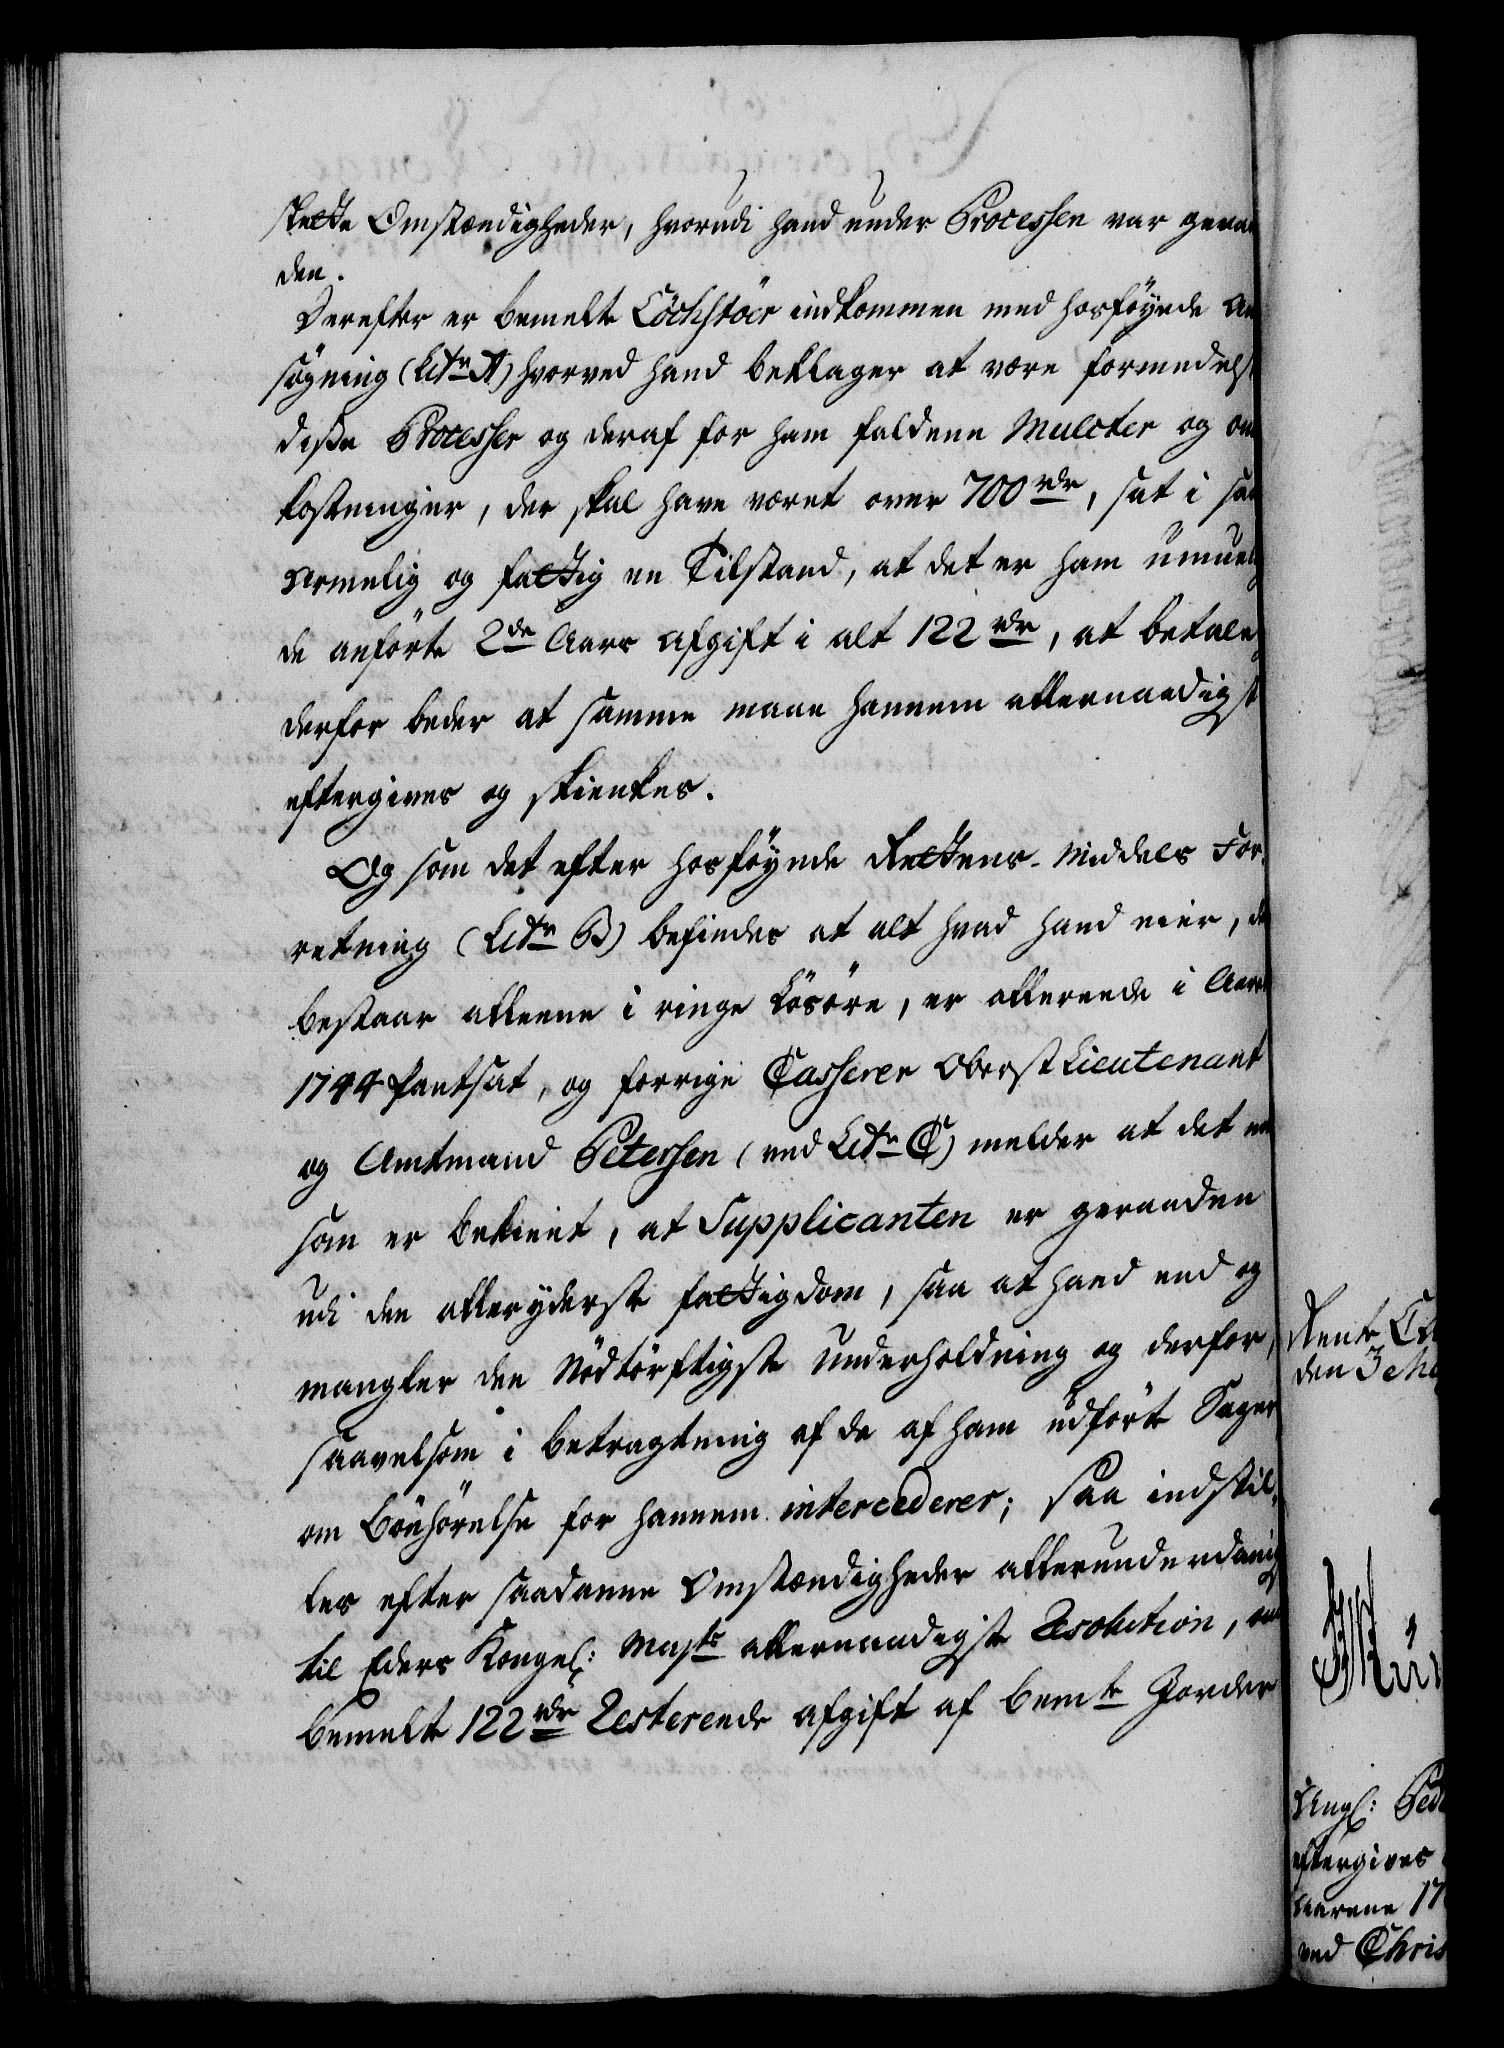 slette Omstændigheder, hvorudi hand under Processen var geraa
den.
Derefter er bemelte Cöchstöer indkommen med hosföyede An
søgning (Litr A) hvorved hand beklager at være formedelst
disse Processer og deraf for ham faldene Mulcter og om
kostninger, der skal have været over 700 rdr, sat i saa
armelig og fattig en Tilstand, at det er ham umuelig
de anförte 2de Aars Afgift i alt 122 rdr, at betale,
derfor beder at samme maae hannem allernaadigst
eftergives og skienkes.
Og som det efter hosföyende Rettens-Middels For-
retning (Litr B) befindes at alt hvad hand eier, der
bestaar alleene i ringe Lösöre, er allereede i Aaret
1744 pantsat, og forrige Casserer Oberst Lieutenant
og Amtmand Petersen (ved Litr C) melder at det en
som er bekient, at Supplicanten er geraaden
udi den alleryderste fattigdom, saa at hand end og
mangler den Nödtörftigste Underholdning og derfor,
saavelsom i betragtning af de af ham udförte Sager
om Bönhörelse for hannem intercederer; Saa indstil-
les efter saadanne Omstændigheder allerunderdanigst
til Eders Kongel: Majts allernaadigste Resolution, om
bemelte 122 rdr Resterende Afgift af bemte Gorder
Rente C
den 3
Ansl: Ped
eftergives
Aarene 17
ved Chris